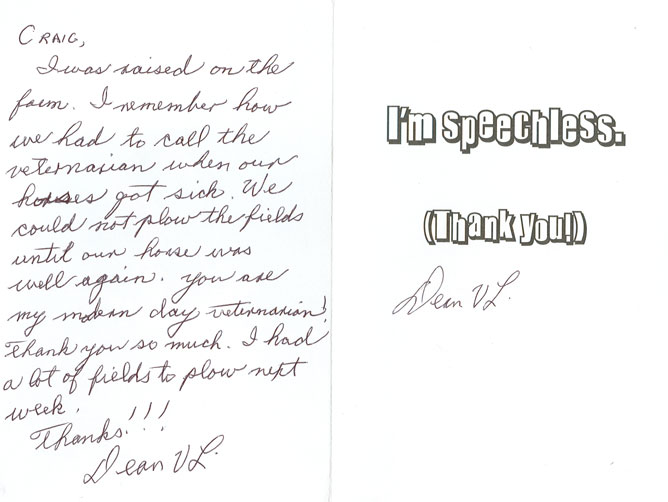 CRAIG,
I was raised on the
farm. I remember how
we had to call the
veternarian when our
horses got sick. We
could not plow the fields
until our horse was
well again. you are
my modern day veternarian!
Thank you so much. I had
a lot of fields to plow next
week.
Thanks!!!
Dean V L.
I'm speechless.
(Thank you!)
Dean V L.